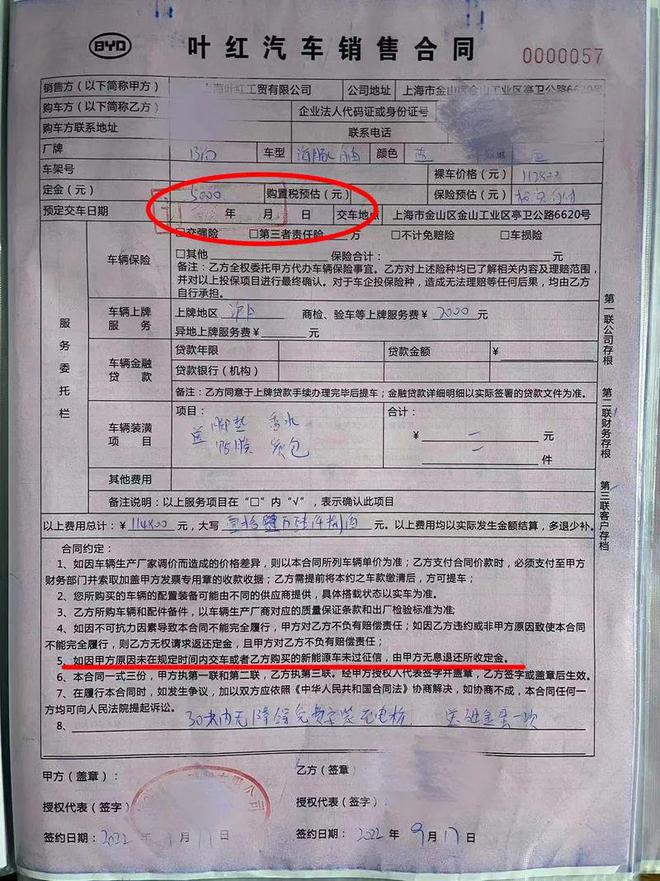 BYD 叶红汽车销售合同 0000057
销售方（以下简称甲方） 上海叶红工贸有限公司 公司地址 上海市金山区金山工业区亭卫公路6620号
购车方（以下简称乙方） 企业法人代码证或身份证号
购车方联系地址 联系电话
厂牌 车型 海豚 颜色
车架号 裸车价格（元）
定金（元） 5000 购置税预估（元） 保险预估（元）
预定交车日期 年 月 日 交车地点 上海市金山区金山工业区亭卫公路6620号
服务委托栏
车辆保险
□交强险 □第三者责任险 万 □不计免赔险 □车损险
□其他 保险合计： 元
备注：乙方全权委托甲方代办车辆保险事宜。乙方对上述险种均已了解相关内容及理赔范围，
并对以上投保项目进行最终确认。对于车企投保险种，造成无法理赔等任何后果，均由乙方
自行承担。
车辆上牌服务
上牌地区 沪 商检、验车等上牌服务费¥ 2000 元
异地上牌服务费¥ 元
车辆金融贷款
贷款年限 贷款金额 ¥
贷款银行（机构）
备注：乙方同意于上牌贷款手续办理完毕后提车；金融贷款详细明细以实际签署的贷款文件为准。
车辆装潢项目
项目： 合计：
送 脚垫 香水 ¥ 一 元
贴膜 一 件
其他费用
备注说明：以上服务项目在“□”内“√”，表示确认此项目
第一联公司存根
第二联财务存根
第三联客户存档
以上费用总计：¥ 114800 元，大写 元。以上费用均以实际发生金额结算，多退少补。
合同约定：
1、如因车辆生产厂家调价而造成的价格差异，则以本合同所列车辆单价为准；乙方支付合同价款时，必须支付至甲方
财务部门并索取加盖甲方发票专用章的收款收据；乙方需提前将本约之车款缴清后，方可提车；
2、您所购买的车辆的配置装备可能由不同的供应商提供，具体搭载状态以实车为准。
3、乙方所购车辆和配件备件，以车辆生产厂商对应的质量保证条款和出厂检验标准为准；
4、如因不可抗力因素导致本合同不能完全履行，甲方对乙方不负有赔偿责任；如因乙方违约或非甲方原因致使本合同
不能完全履行的，则乙方无权请求返还定金，且甲方对乙方不负有赔偿责任；
5、如因甲方原因未在规定时间内交车或者乙方购买的新能源车未过征信，由甲方无息退还所收定金。
6、本合同一式三份，甲方执第一联和第二联，乙方执第三联。经甲方授权人代表签字并盖章，乙方签字或盖章后生效。
7、在履行本合同时，如发生争议，加以双方应依照《中华人民共和国合同法》协商解决，如协商不成，本合同任何一
方均可向人民法院提起诉讼。
8、30天内无 免费安装充电桩
甲方（盖章）： 乙方（签章）
授权代表（签字） 授权代表（签字）
签约日期：2022 年 9月17日 签约日期：2022 年 9月17日